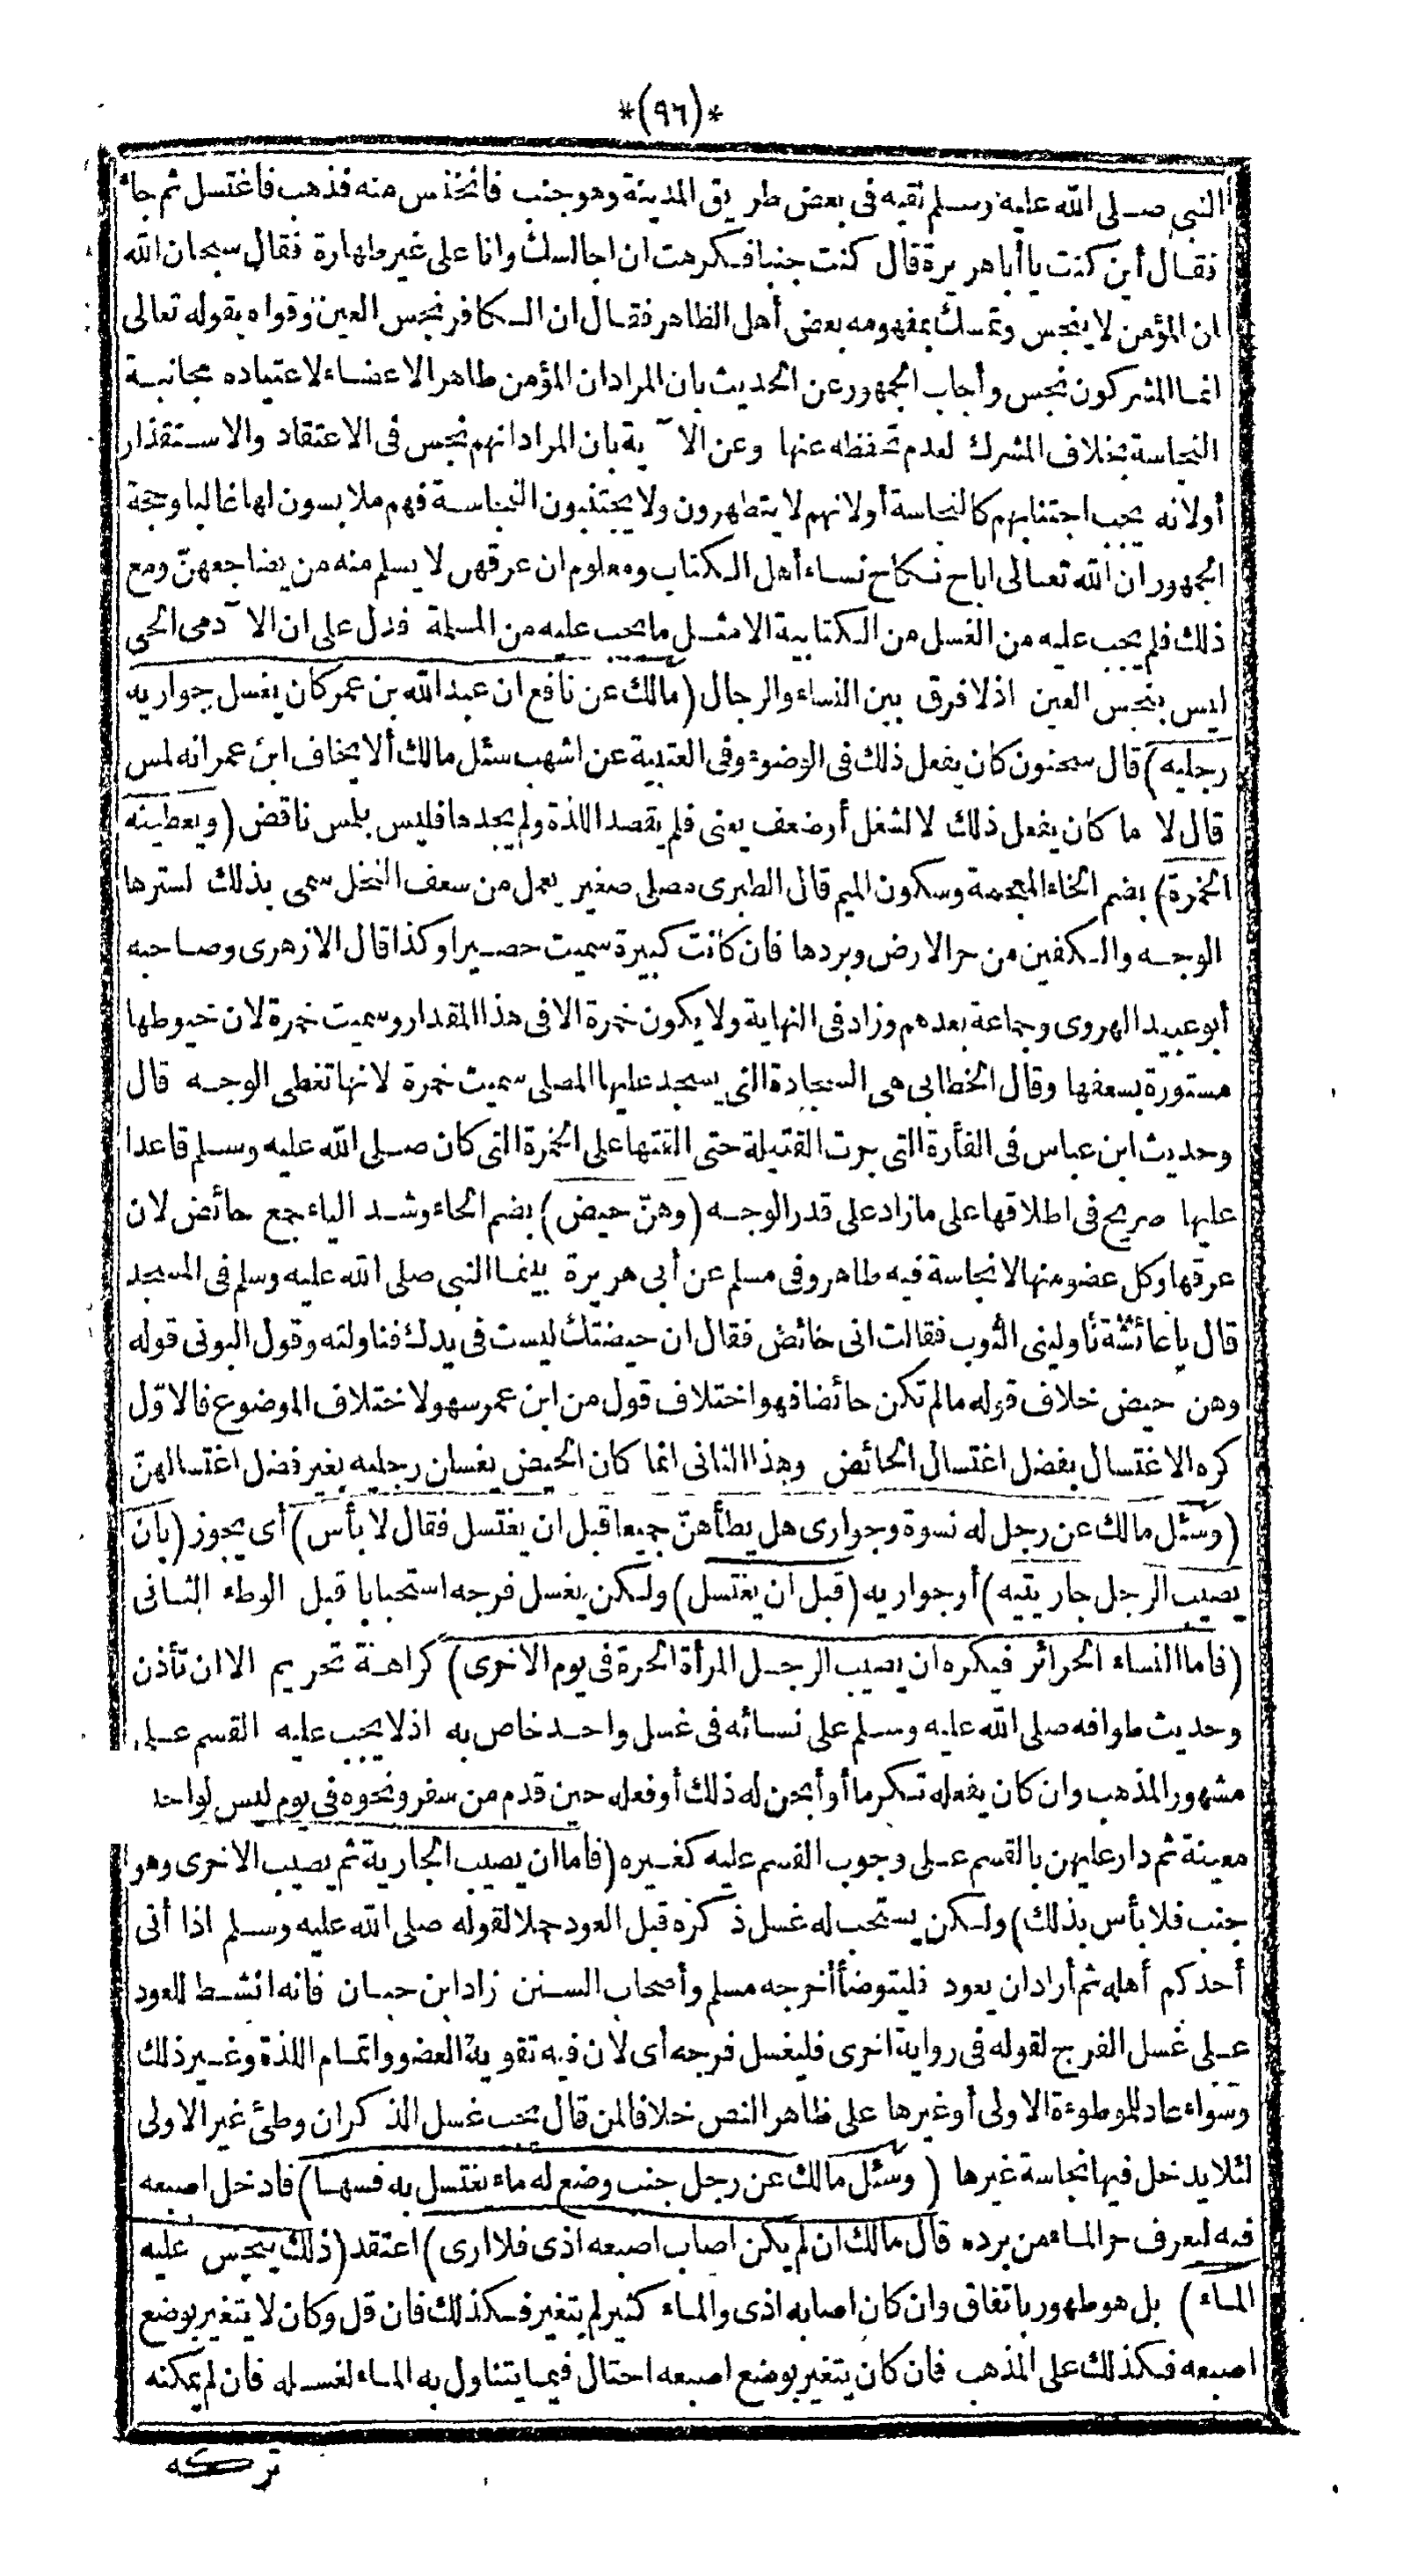 *(٩٦)*
النبي صلى الله عليه وسلم لقيه فى بعض طريق المدينة وهو جنب فانخنس منه فذهب فاغتسل ثم جاء
فقال أين كنت يا أبا هريرة قال كنت جنبا فكرهت ان اجالسك وانا على غير طهارة فقال سبحان الله
ان المؤمن لا ينجس وتمسك بمفهومه بعض أهل الظاهر فقال ان الكافر نجس العين وقواه بقوله تعالى
انما المشركون نجس وأجاب الجمهور عن الحديث بان المراد ان المؤمن طاهر الاعضاء لاعتياده مجانبة
النجاسة بخلاف المشرك لعدم تحفظه عنها وعن الآية بان المراد انهم نجس فى الاعتقاد والاستقذار
أولانه يجب اجتنابهم كالنجاسة أولانهم لا يتطهرون ولا يجتنبون النجاسة فهم ملابسون لها غالبا وحجة
الجمهور ان الله تعالى اباح نكاح نساء أهل الكتاب ومعلوم ان عرقهن لا يسلم منه من يضاجعهنّ ومع
ذلك فلم يجب عليه من الغسل من الكتابية الا مثل ما يجب عليه من المسلمة فدل على ان الآدمى الحى
ليس بنجس العين اذلا فرق بين النساء والرجال (مالك عن نافع ان عبد الله بن عمر كان يغسل جواريه
رجليه) قال سحنون كان يفعل ذلك فى الوضوء وفى العتبية عن اشهب سئل مالك ألا يخاف ابن عمر انه لمس
قال لا ما كان يفعل ذلك لا لشغل أو ضعف يعنى فلم يقصد اللذة ولم يجدها فليس بلمس ناقض (ويعطينه
الخمرة) بضم الخاء المعجمة وسكون الميم قال الطبرى مصلى صغير يعمل من سعف النخل سمى بذلك لسترها
الوجه والكفين من حر الارض وبردها فان كانت كبيرة سميت حصيرا وكذا قال الازهرى وصاحبه
أبو عبيد الهروى وجماعة بعدهم وزاد فى النهاية ولا يكون خمرة الا فى هذا المقدار وسميت خمرة لان خيوطها
مستورة بسعفها وقال الخطابى هى السجادة التى يسجد عليها المصلى سميت خمرة لانها تغطى الوجه قال
وحديث ابن عباس فى الفأرة التى جرت الفتيلة حتى القتها على الخمرة التى كان صلى الله عليه وسلم قاعدا
عليها صريح فى اطلاقها على ما زاد على قدر الوجه (وهنّ حيض) بضم الحاء وشد الياء جمع حائض لان
عرقها وكل عضو منها لا نجاسة فيه طاهر وفى مسلم عن أبى هريرة بينما النبي صلى الله عليه وسلم فى المسجد
قال يا عائشة ناولينى الثوب فقالت انى حائض فقال ان حيضتك ليست فى يدك فناولته وقول البونى قوله
وهن حيض خلاف قوله ما لم تكن حائضا فهو اختلاف قول من ابن عمر سهو لاختلاف الموضوع فالاوّل
كره الاغتسال بفضل اغتسال الحائض وهذا الثانى انما كان الحيض يغسلن رجليه بغير فضل اغتسالهنّ
(وسئل مالك عن رجل له نسوة وجوارى هل يطأهنّ جميعا قبل ان يغتسل فقال لا بأس) أى يجوز (بان
يصيب الرجل جاريتيه) أو جواريه (قبل ان يغتسل) ولكن يغسل فرجه استحبابا قبل الوطء الثانى
(فاما النساء الحرائر فيكره ان يصيب الرجل المرأة الحرة فى يوم الاخرى) كراهة تحريم الا ان تأذن
وحديث طوافه صلى الله عليه وسلم على نسائه فى غسل واحد خاص به اذ لا يجب عليه القسم على
مشهور المذهب وان كان يفعله تكرما أو أبحن له ذلك أو فعله حين قدم من سفر ونحوه فى يوم ليس لواحد
معينة ثم دار عليهن بالقسم على وجوب القسم عليه كغيره (فاما ان يصيب الجارية ثم يصيب الاخرى وهو
جنب فلا بأس بذلك) ولكن يستحب له غسل ذكره قبل العود حملا لقوله صلى الله عليه وسلم اذا أتى
أحدكم أهله ثم أراد ان يعود فليتوضأ أخرجه مسلم وأصحاب السنن زاد ابن حبان فانه انشط للعود
على غسل الفرج لقوله فى رواية اخرى فليغسل فرجه أى لان فيه تقوية العضو واتمام اللذة وغير ذلك
وسواء عاد للموطوءة الاولى أو غيرها على ظاهر النص خلافا لمن قال يجب غسل الذكر ان وطئ غير الاولى
لئلا يدخل فيها نجاسة غيرها (وسئل مالك عن رجل جنب وضع له ماء يغتسل به فسها) فادخل اصبعه
فيه ليعرف حر الماء من برده قال مالك ان لم يكن اصاب اصبعه اذى فلا ارى) اعتقد (ذلك ينجس عليه
الماء) بل هو طهور باتفاق وان كان اصابه اذى والماء كثير لم يتغير فكذلك فان قل وكان لا يتغير بوضع
اصبعه فكذلك على المذهب فان كان يتغير بوضع اصبعه احتال فيما يتناول به الماء لغسله فان لم يمكنه
تركه